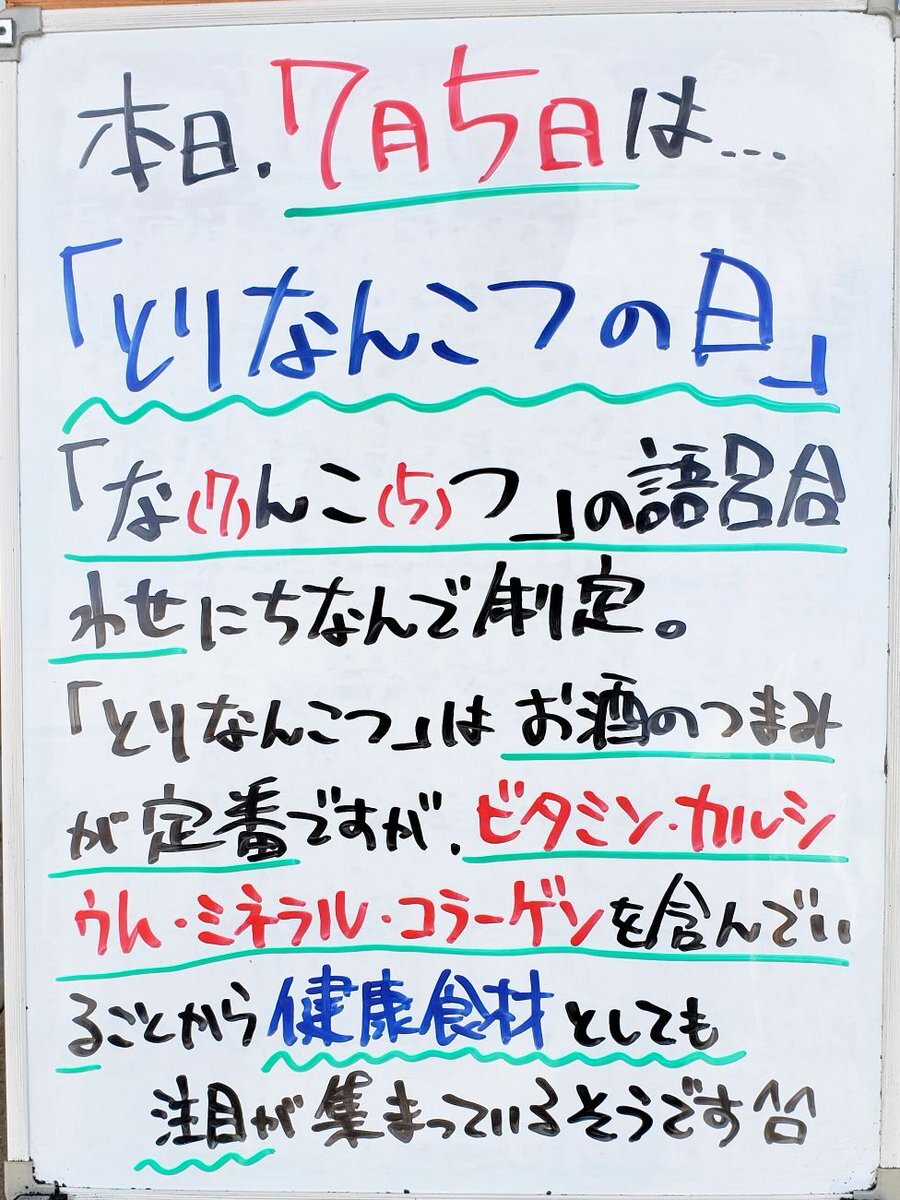 本日、7月5日は...
「とりなんこつの日」
「な(7)んこ(5)つ」の語呂合
わせにちなんで制定。
「とりなんこつ」はお酒のつまみ
が定番ですが、ビタミン・カルシ
ウム・ミネラル・コラーゲンを含んでい
ることから健康食材としても
注目が集まっているそうです^^